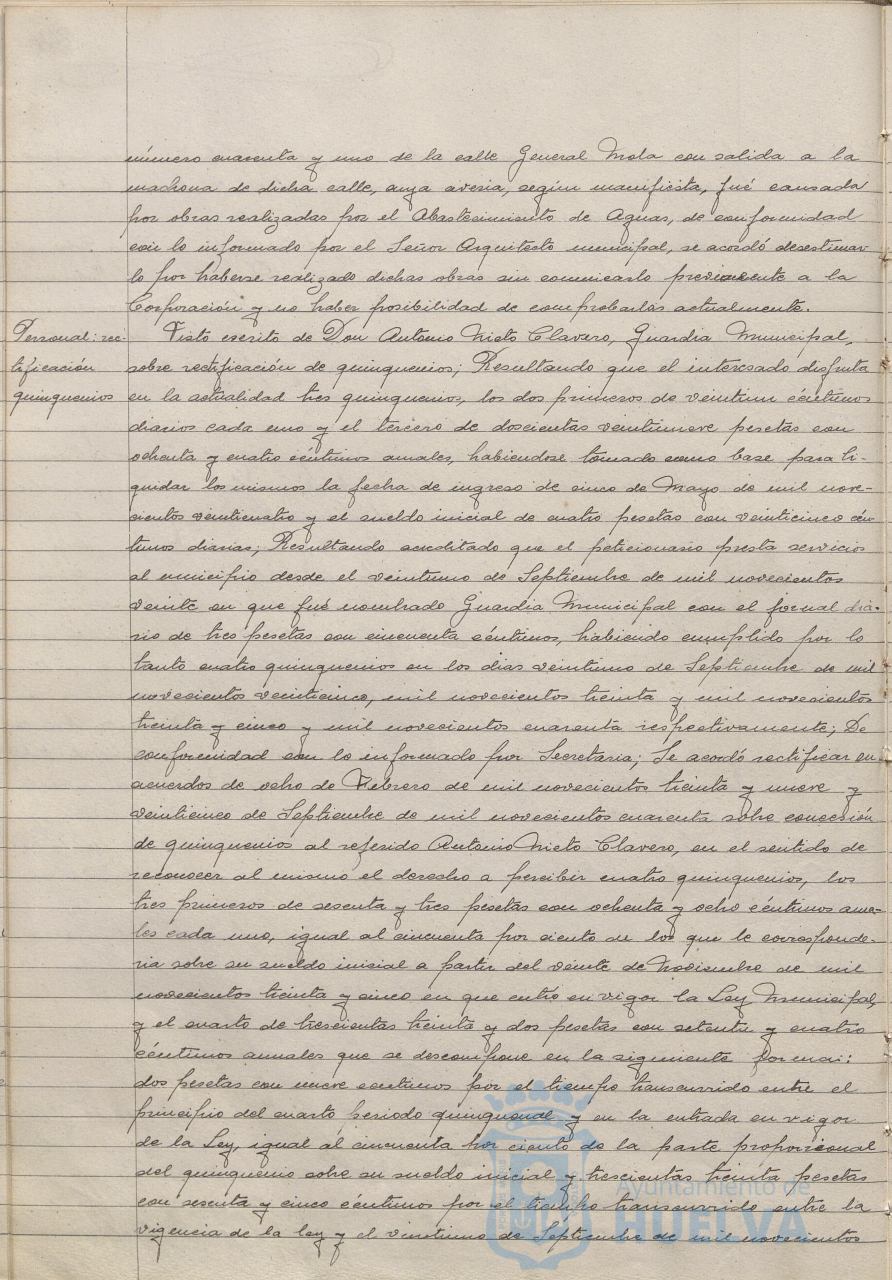 número cuarenta y uno de la calle General Mola con salida a la
machona de dicha calle, cuya averia, según manifiesta, fué causada
por obras realizadas por el Abastecimiento de Aguas, de conformidad
con lo informado por el Señor Arquitecto municipal, se acordó desestimar
lo por haberse realizado dichas obras sin comunicarlo previamente a la
Corporación y no haber posibilidad de comprobarlas actualmente.
Personal: rec-
tificación
quinquenios
Visto escrito de Don Antonio Nieto Clavero, Guardia Municipal,
sobre rectificación de quinquenios; Resultando que el interesado disfruta
en la actualidad tres quinquenios, los dos primeros de veintiun céntimos
diarios cada uno y el tercero de doscientas veintinueve pesetas con
ochenta y cuatro céntimos anuales, habiendose tomado como base para li-
quidar los mismos la fecha de ingreso de cinco de Mayo de mil nove-
cientos veinticuatro y el sueldo inicial de cuatro pesetas con veinticinco cén
timos diarias; Resultando acreditado que el peticionario presta servicios
al municipio desde el veintiuno de Septiembre de mil novecientos
veinte en que fué nombrado Guardia Municipal con el jornal dia-
rio de tres pesetas con cincuenta céntimos, habiendo cumplido por lo
tanto cuatro quinquenios en los dias veintiuno de Septiembre de mil
novecientos veinticinco, mil novecientos treinta y mil novecientos
treinta y cinco y mil novecientos cuarenta respectivamente; De
conformidad con lo informado por Secretaria; Se acordó rectificar sus
acuerdos de ocho de Febrero de mil novecientos treinta y nueve y
veinticinco de Septiembre de mil novecientos cuarenta sobre concesión
de quinquenios al referido Antonio Nieto Clavero, en el sentido de
reconocer al mismo el derecho a percibir cuatro quinquenios, los
tres primeros de sesenta y tres pesetas con ochenta y ocho céntimos anua-
les cada uno, igual al cincuenta por ciento de los que le corresponde-
ria sobre su sueldo inicial a partir del veinte de Noviembre de mil
novecientos treinta y cinco en que entró en vigor la Ley Municipal,
y el cuarto de trescientas treinta y dos pesetas con setenta y cuatro
céntimos anuales que se descompone en la siguiente forma:
dos pesetas con nueve centimos por el tiempo transcurrido entre el
principio del cuarto periodo quinquenal y en la entrada en vigor
de la Ley, igual al cincuenta por ciento de la parte proporcional
del quinquenio sobre su sueldo inicial y trescientas treinta pesetas
con sesenta y cinco céntimos por el tiempo transcurrido entre la
vigencia de la ley y el veintiuno de Septiembre de mil novecientos
Ayuntamiento de
HUELVA